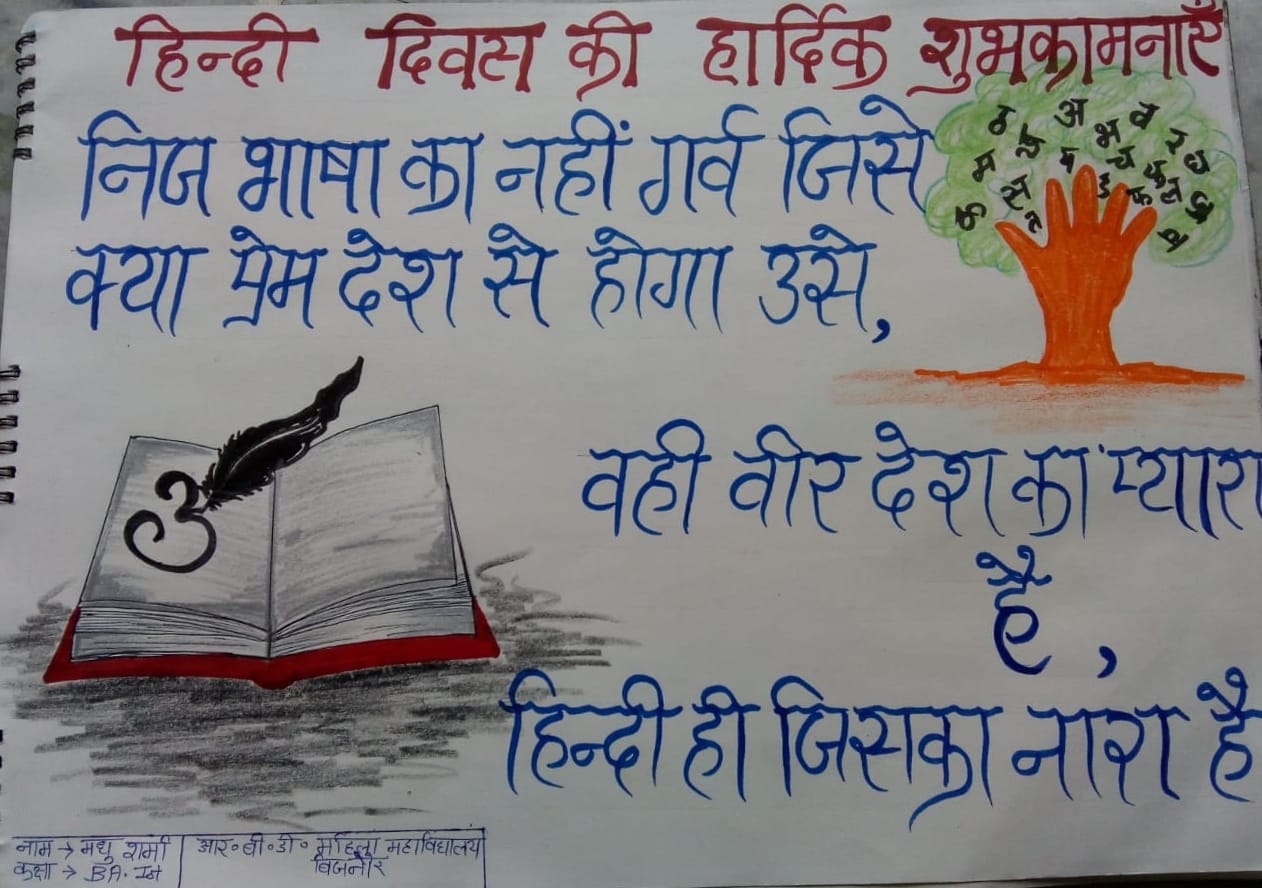 हिन्दी दिवस की हार्दिक शुभकामनाएँ
निज भाषा का नहीं गर्व जिसे
क्या प्रेम देश से होगा उसे,
वही वीर देश का प्यारा
है,
हिन्दी ही जिसका नारा है
उ
नाम → मधु शर्मा
कक्षा → BA. Ist
आर॰बी॰डी॰ महिला महाविद्यालय
बिजनौर